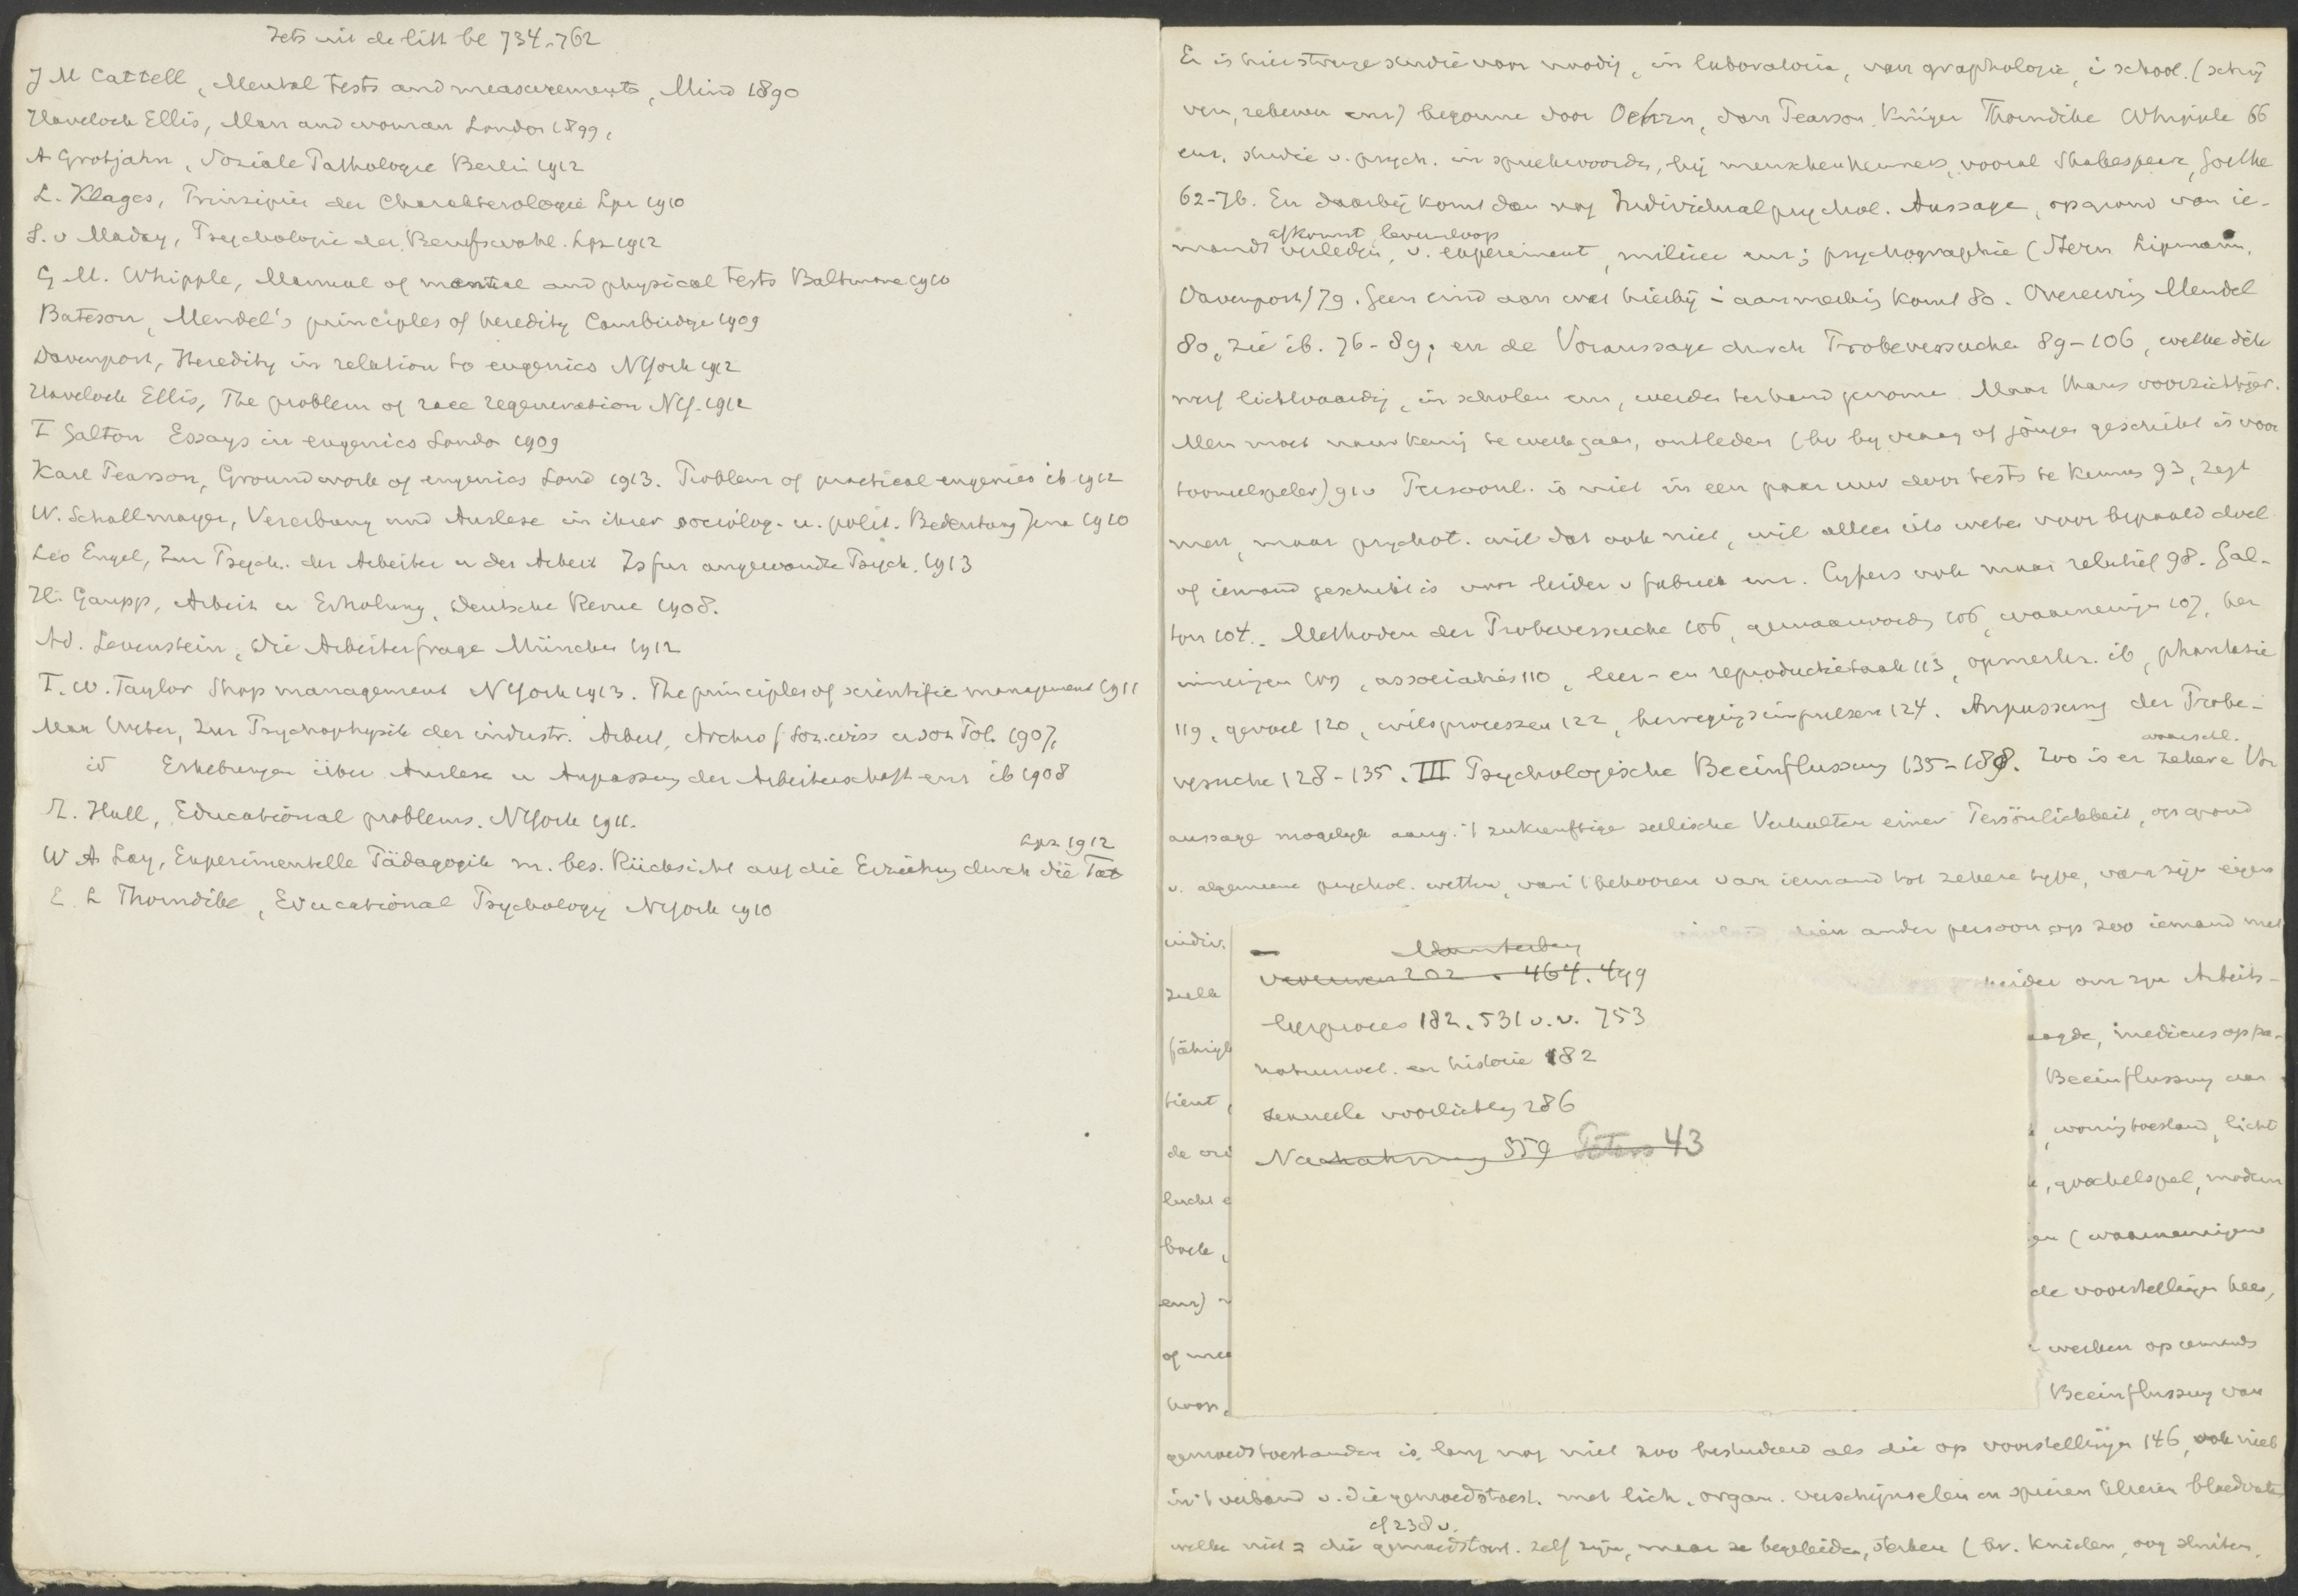 Iets uit de litt bl 734-762
J M Cattell, Mental tests and measurements, Mind 1890
Havelock Ellis, Man and woman London 1899,
A Grotjahn, Soziale Pathologie Berlin 1912
L. Klages, Prinzipien der Charakterologie Lpz 1910
S. v Maday, Psychologie der Berufswahl. Lpz 1912
G M. Whipple, Manual of mental and physical tests Baltimore 1910
Bateson, Mendel's principles of heredity Cambridge 1909
Davenport, Heredity in relation to eugenics NYork 1912
Havelock Ellis, The problem of race regeneration NY. 1911
F Galton Essays in eugenics London 1909
Karl Pearson, Groundwork of eugenics Lond 1913. Problem of practical eugenics ib 1912
W. Schallmayer, Vererbung und Auslese in ihrer sociolog. u. polit. Bedeutung Jena 1910
Leo Engel, Zur Psych. der Arbeiter u der Arbeit Zs fur angewandte Psych. 1913
H. Gaupp, Arbeit u Erholung, Deutsche Revue 1908.
Ad. Levenstein, Die Arbeiterfrage München 1912
F. W. Taylor Shop management NYork 1913. The principles of scientific management 1911
Max Weber, Zur Psychophysik der industr. Arbeit, Archiv f Soz. wiss u soz Pol. 1907,
id Erhebungen über Auslese u Anpassung der Arbeiterschaft enz ib 1908
S. Hall, Educational problems. NYork 1911.
Lpz 1912
W A Lay, Experimentelle Pädagogik m. bes. Rücksicht auf die Erziehung durch die Tat
E. L Thorndike, Educational Psychology NYork 1910
Er is hier strenge studie voor noodig, in laboratoria, van graphologie, i school. (schrij
ven, rekenen enz) begonnen door Oehrn, dan Pearson, Krüger Thorndike Whipple 66
enz, studie v. psych. in spreekwoorden, bij menschenkenners, vooral Shakespeare, Goethe
62-76. En daarbij komt dan nog Individualpsychol. Aussage, op grond van ie-
afkomst levensloop
mands verleden, v. experiment, milieu enz; psychographie (Stern Lipmann,
Davenport) 79. Geen eind aan wat hierbij i aanmerking komt 80. Overerving Mendel
80, zie ib. 76-89, en de Voraussage durch Probeversuche 89-106, welke dik
werf lichtvaardig, in scholen enz, werden ter hand genomen. Maar thans voorzichtiger.
Men moet nauwkeurig te werk gaan, ontleden (bv bij vraag of jongen geschikt is voor
tooneelspeler) 91v Persoonl. is niet in een paar uur door tests te kennen 93, zegt
men, maar psychot. wil dat ook niet, wil alleen iets weten voor bepaald doel
of iemand geschikt is voor leider v fabriek enz. Cijfers ook maar relatief 98. Gal-
ton 104. Methoden der Probeversuche 106, gewaarword. 106, waarnemingen 107, her
inneringen 109, associaties 110, leer- en reproductietaak 113, opmerkz. ib, phantasie
119, gevoel 120, wilsprocessen 122, bewegingsimpulsen 124. Anpassung der Probe-
waarschl.
versuche 128-135. III Psychologische Beeinflussung 135-188. Zoo is er zekere Vor
aussage mogelijk aang. 't zukunftige seelische Verhalten einer Persönlichkeit, op grond
v. algemeene psychol. wetten, van 't behooren van iemand tot zekere type, van zijn eigen
indiv. een ander persoon op zoo iemand met
zulke leider om zijn Arbeits-
fähigk aagde, medicus op pa-
tient, Beeinflussung van
de , woningtoestand, licht
lucht e , goochelspel, modern
boek, en (waarnemingen
enz) de voorstellingen heel,
of mee werken op iemands
hoop, Beeinflussung van
Munsterberg
464. 499
leerproces 182. 531 v. v. 753
natuurwet. en historie 182
sexueele voorlichting 286
Nachahmung 559 Peters 43
gemoedstoestanden is lang nog niet zoo bestudeerd als die op voorstellingen 146, ook niet
in 't verband v. die gemoedstoest. met lich. organ. verschijnselen en spieren klieren bloedvaten
cf 238 v.
welke niet = die gemoedstoest. zelf zijn, maar ze begeleiden, sterken (bv. knielen, oog sluiten,